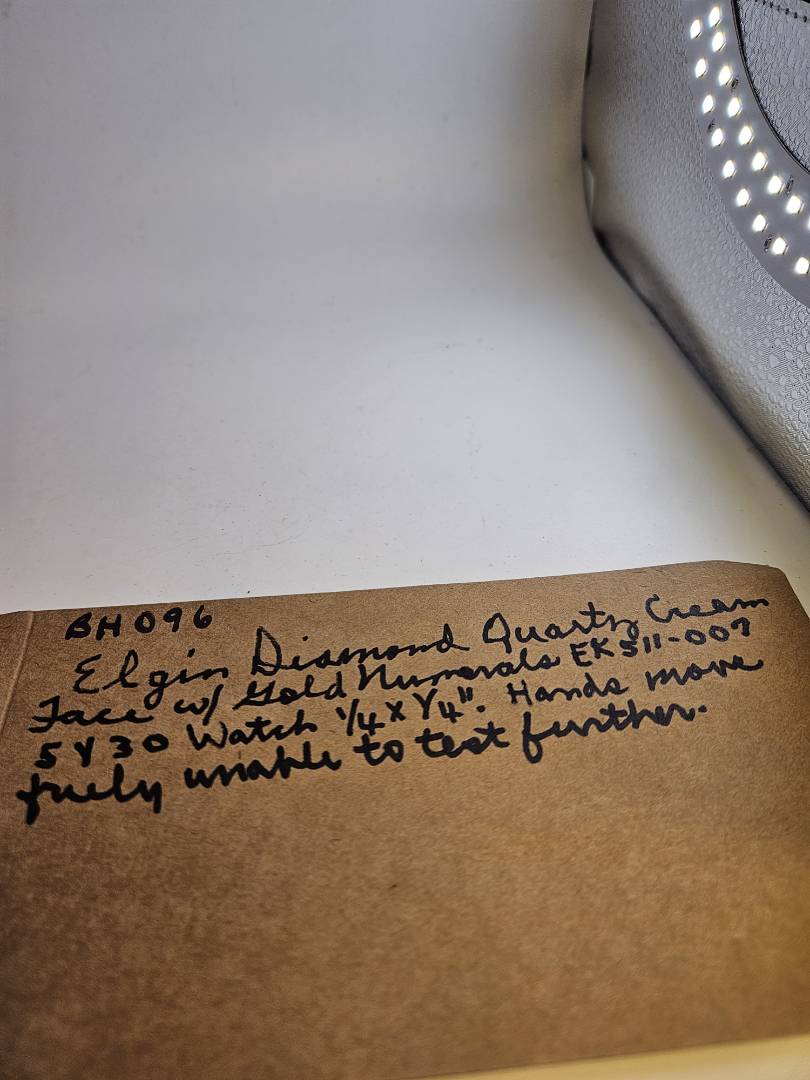 BH096
Elgin Diamond Quartz Cream
Face w/ Gold Numerals EK511-007
5Y30 Watch 1/4 X 1/4". Hands move
freely unable to test further.